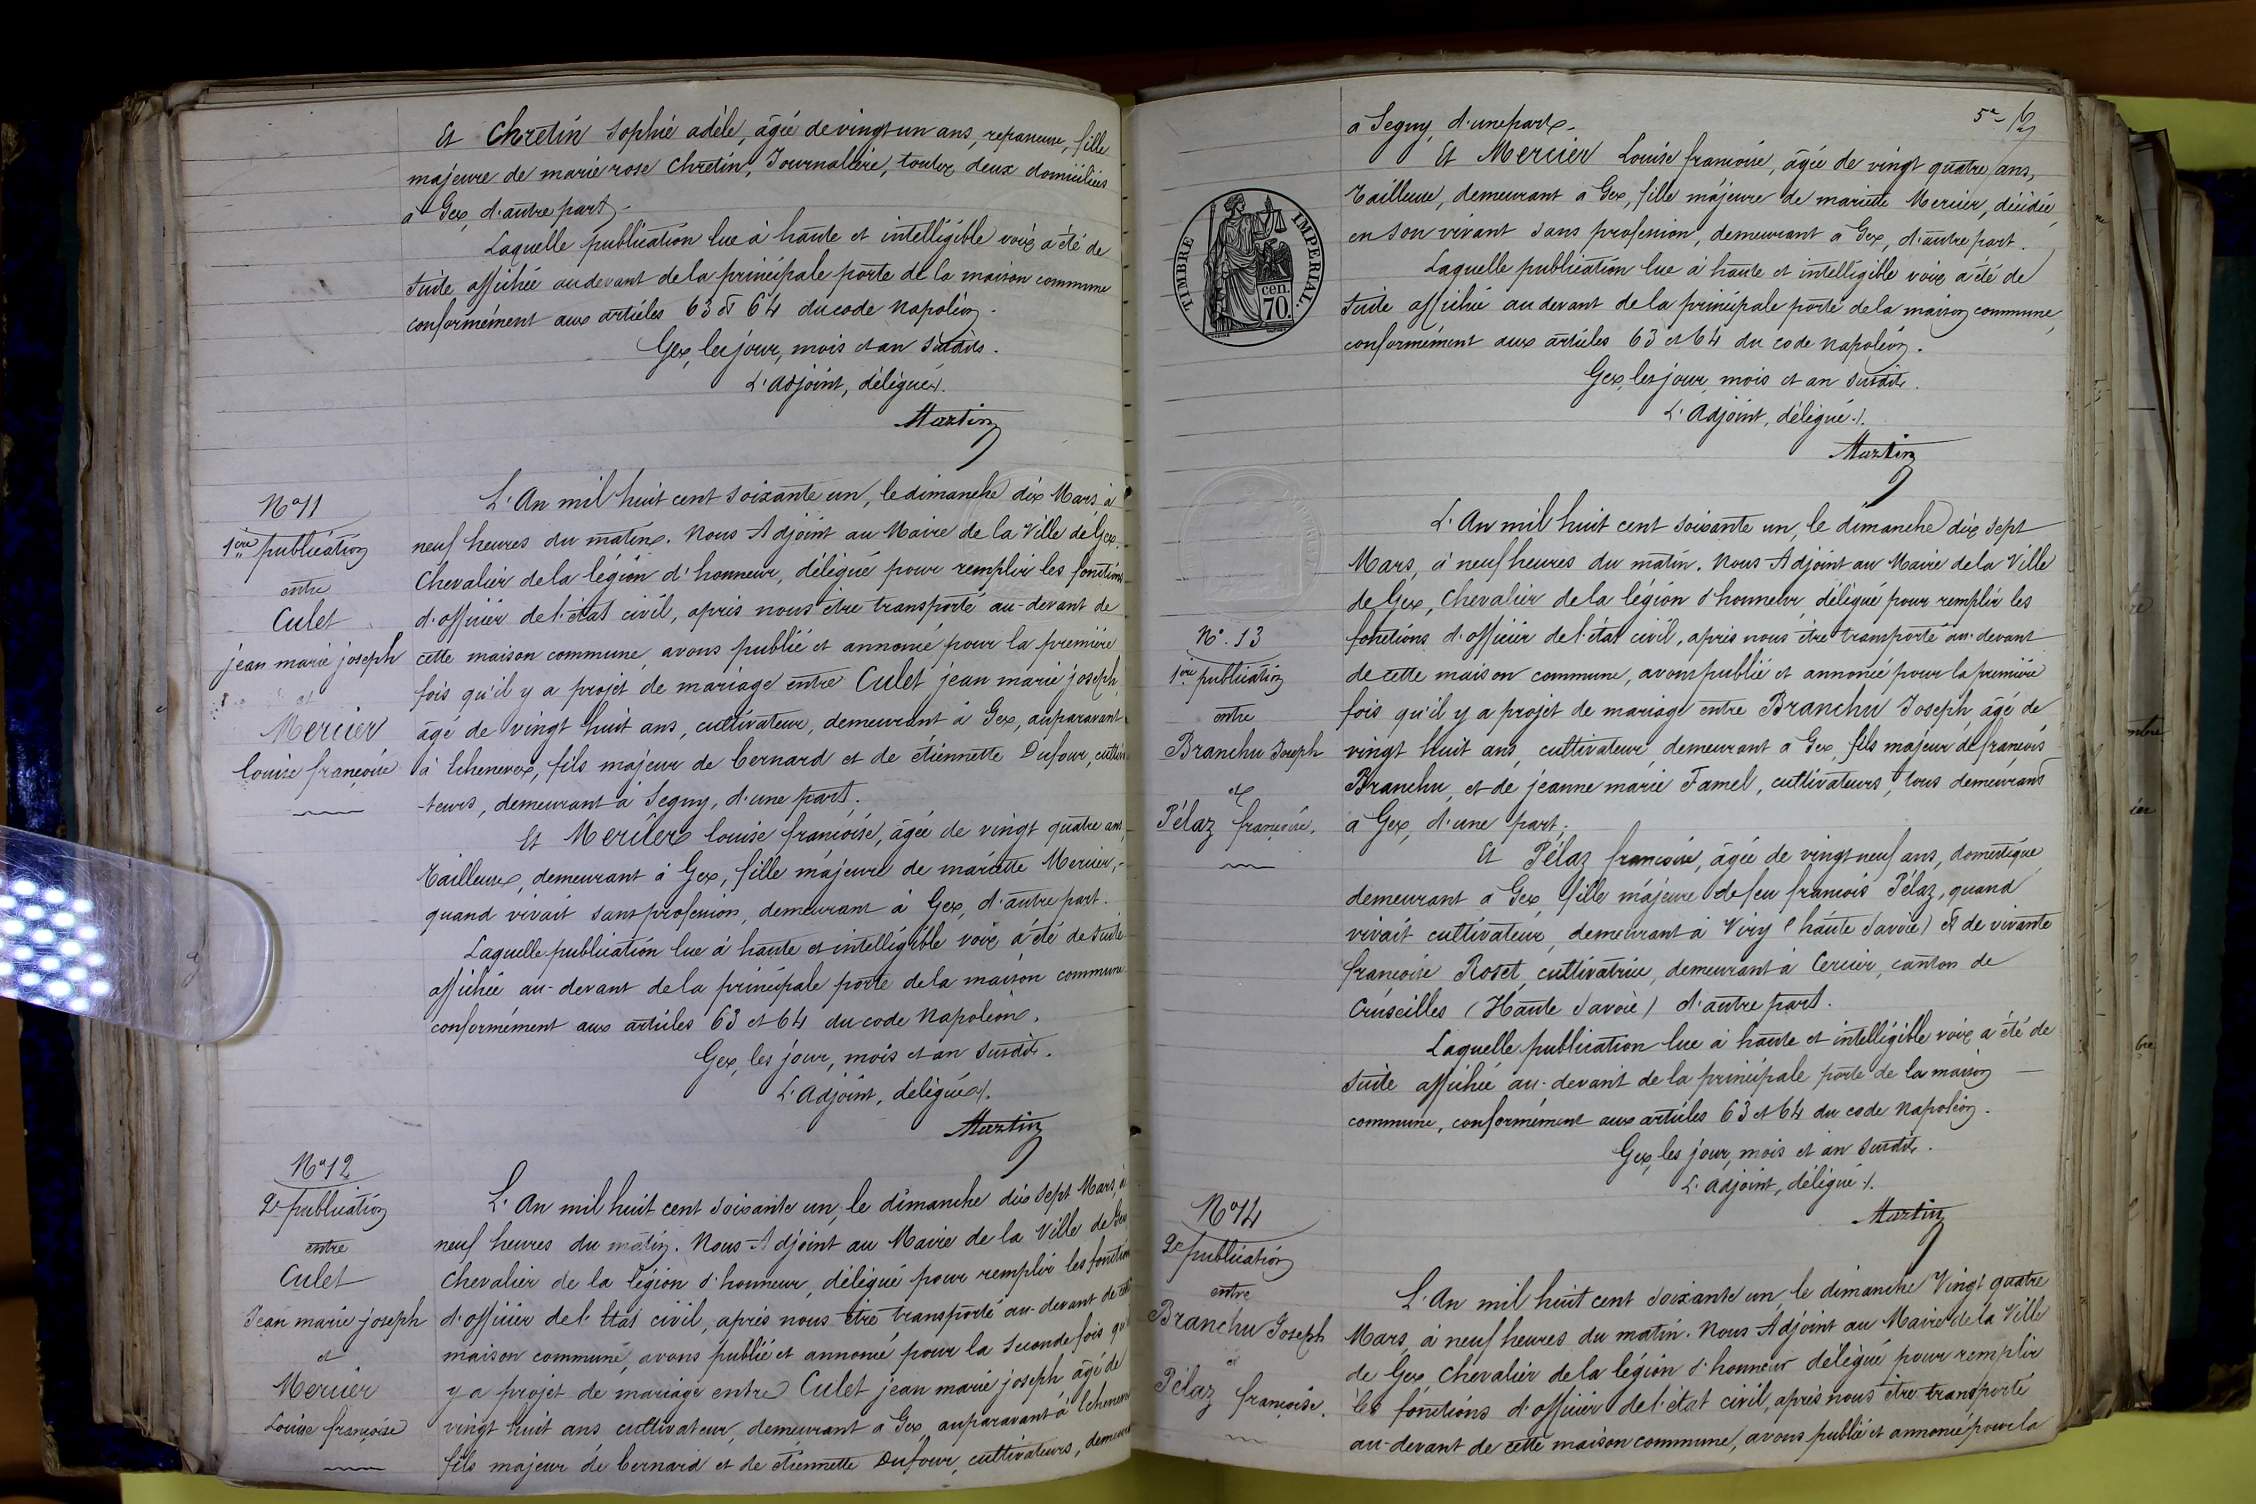 Et Chretin Sophie adèle, âgée de vingt un ans, repasseuse, fille
majeure de marie rose Chretin, Journalière, toutes deux domiciliées
à Gex, d'autre part.
Laquelle publication lue à haute et intelligible voix a été de
suite affichée au devant de la principale porte de la maison commune
conformément aux articles 63 et 64 du code napoléon.
Gex, les jour, mois et an susdits.
L'adjoint, délégué.
Martin
N° 11
1ère publication
entre
Culet
jean marie joseph
et
Mercier
louise françoise
L'An mil huit cent soixante un, le dimanche dix Mars, à
neuf heures du matin. Nous Adjoint au Maire de la Ville de Gex,
Chevalier de la légion d'honneur, délégué pour remplir les fonctions
d'officier de l'état civil, après nous être transporté au-devant de
cette maison commune, avons publié et annoncé pour la première
fois qu'il y a projet de mariage entre Culet jean marie joseph,
âgé de vingt huit ans, cultivateur, demeurant à Gex, auparavant
à Echenevex, fils majeur de bernard et de étiennette Dufour, cultiva
-teurs, demeurant à Segny, d'une part.
Et Mercier louise françoise, âgée de vingt quatre ans,
Tailleuse, demeurant à Gex, fille majeure de mariette Mercier,
quand vivait sans profession, demeurant à Gex, d'autre part.
Laquelle publication lue à haute et intelligible voix a été de suite
affichée au-devant de la principale porte de la maison commune
conformément aux articles 63 et 64 du code Napoléon.
Gex, les jour, mois et an susdits.
L'adjoint, délégué.
Martin
N° 12
2e publication
entre
Culet
Jean marie joseph
et
Mercier
Louise françoise
L'An mil huit cent soixante un, le dimanche dix sept Mars, à
neuf heures du matin. Nous Adjoint au Maire de la Ville de Gex
Chevalier de la légion d'honneur, délégué pour remplir les fonctions
d'officier de l'état civil, après nous être transporté au-devant de cette
maison commune, avons publié et annoncé pour la seconde fois qu'il
y a projet de mariage entre Culet jean marie joseph âgé de
vingt huit ans cultivateur, demeurant à Gex auparavant à Echenevex
fils majeur de bernard et de étiennette Dufour, cultivateurs, demeurant
5e
à Segny, d'une part.
Et Mercier Louise françoise, âgée de vingt quatre ans,
Tailleuse, demeurant à Gex, fille majeure de mariette Mercier, décédée
en son vivant sans profession, demeurant à Gex, d'autre part.
Laquelle publication lue à haute et intelligible voix a été de
suite affichée au devant de la principale porte de la maison commune,
conformément aux articles 63 et 64 du code napoléon.
Gex, les jour, mois et an susdits.
L'Adjoint, délégué.
Martin
TIMBRE IMPERIAL.
cen.
70.
N°. 13
1ère publication
entre
Branchu Joseph
et
Pélaz françoise.
L'An mil huit cent soixante un, le dimanche dix sept
Mars, à neuf heures du matin. Nous Adjoint au Maire de la Ville
de Gex, Chevalier de la légion d'honneur, délégué pour remplir les
fonctions d'officier de l'état civil, après nous être transporté au-devant
de cette maison commune, avons publié et annoncé pour la première
fois qu'il y a projet de mariage entre Branchu Joseph, âgé de
vingt huit ans, cultivateur, demeurant à Gex, fils majeur de françois
Branchu, et de jeanne marie Famel, cultivateurs, tous demeurans
à Gex, d'une part.
Et Pélaz françoise, âgée de vingt neuf ans, domestique
demeurant à Gex, fille majeure de feu françois Pélaz, quand
vivait cultivateur, demeurant à Viry (haute Savoie) et de vivante
françoise Roset, cultivatrice, demeurant à Cercier, canton de
Cruseilles (Haute Savoie) d'autre part.
Laquelle publication lue à haute et intelligible voix a été de
suite affichée au-devant de la principale porte de la maison
commune, conformément aux articles 63 et 64 du code napoléon.
Gex, les jour, mois et an susdits.
L'adjoint, délégué.
Martin
N° 14
2e publication
entre
Branchu Joseph
et
Pélaz françoise.
L'An mil huit cent soixante un, le dimanche Vingt quatre
Mars, à neuf heures du matin. Nous Adjoint au Maire de la Ville
de Gex, Chevalier de la légion d'honneur délégué pour remplir
les fonctions d'officier de l'état civil, après nous être transporté
au-devant de cette maison commune, avons publié et annoncé pour la